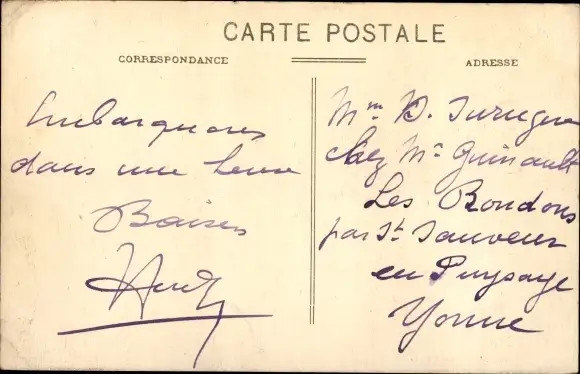 CARTE POSTALE
CORRESPONDANCE
ADRESSE
Embarquons
dans une heure
Baisers
Mme D.
chez Mr Guinault
Les Bondons
par St Sauveur
en Puysaye
Yonne